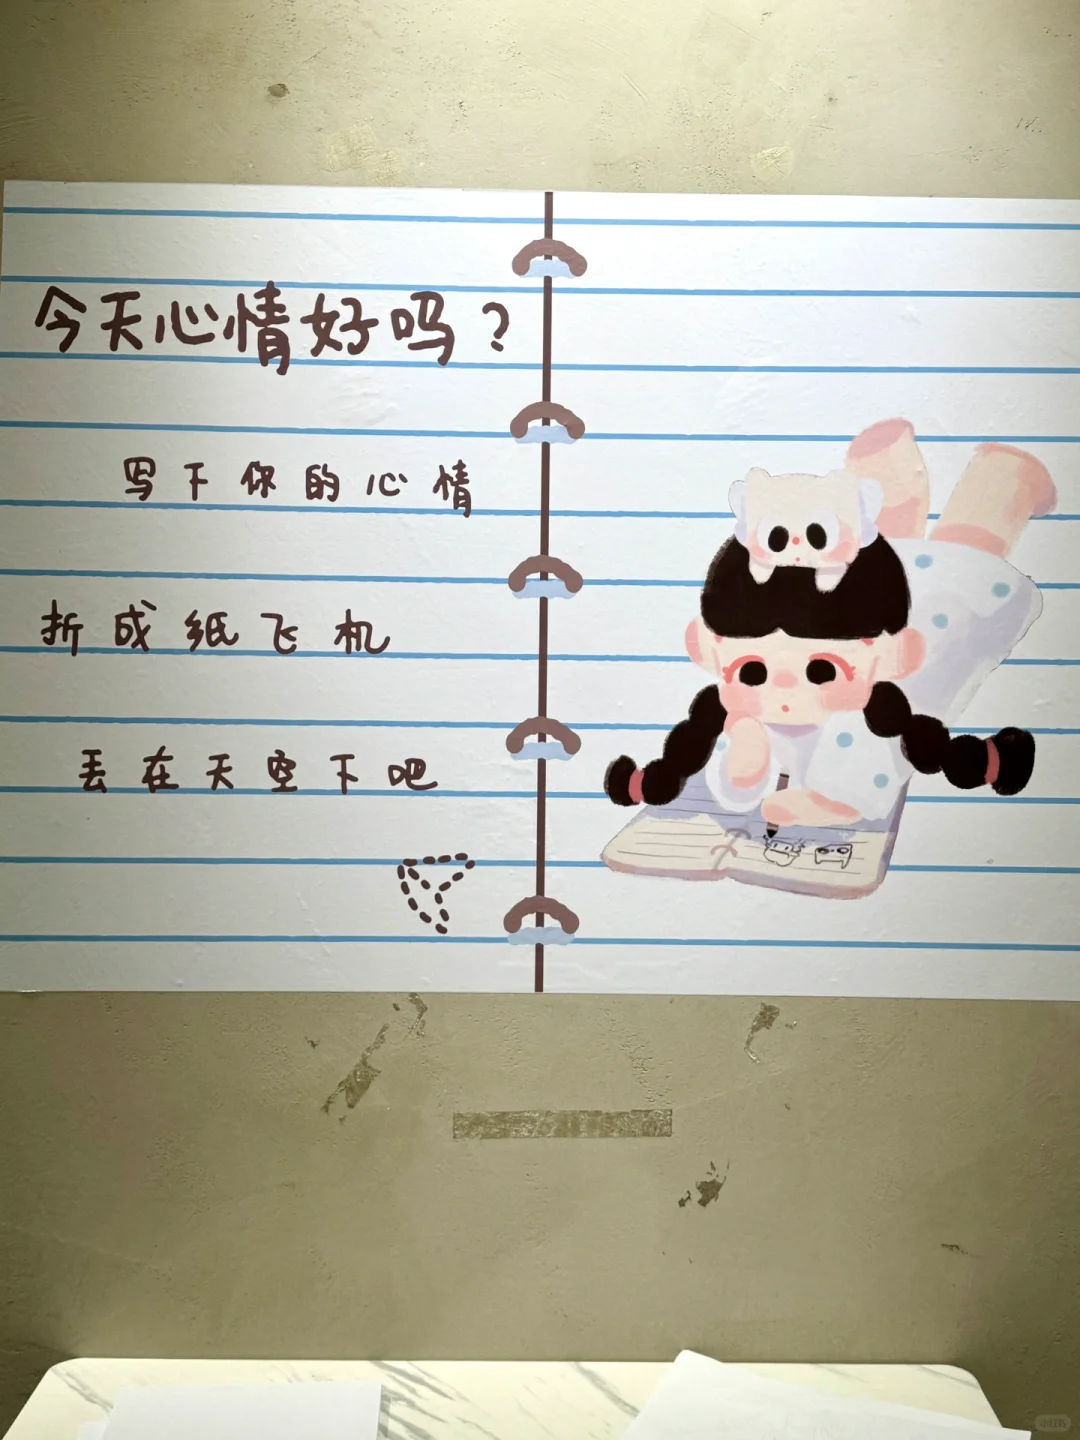 今天心情好吗？
写下你的心情
折成纸飞机
丢在天空下吧
小红书